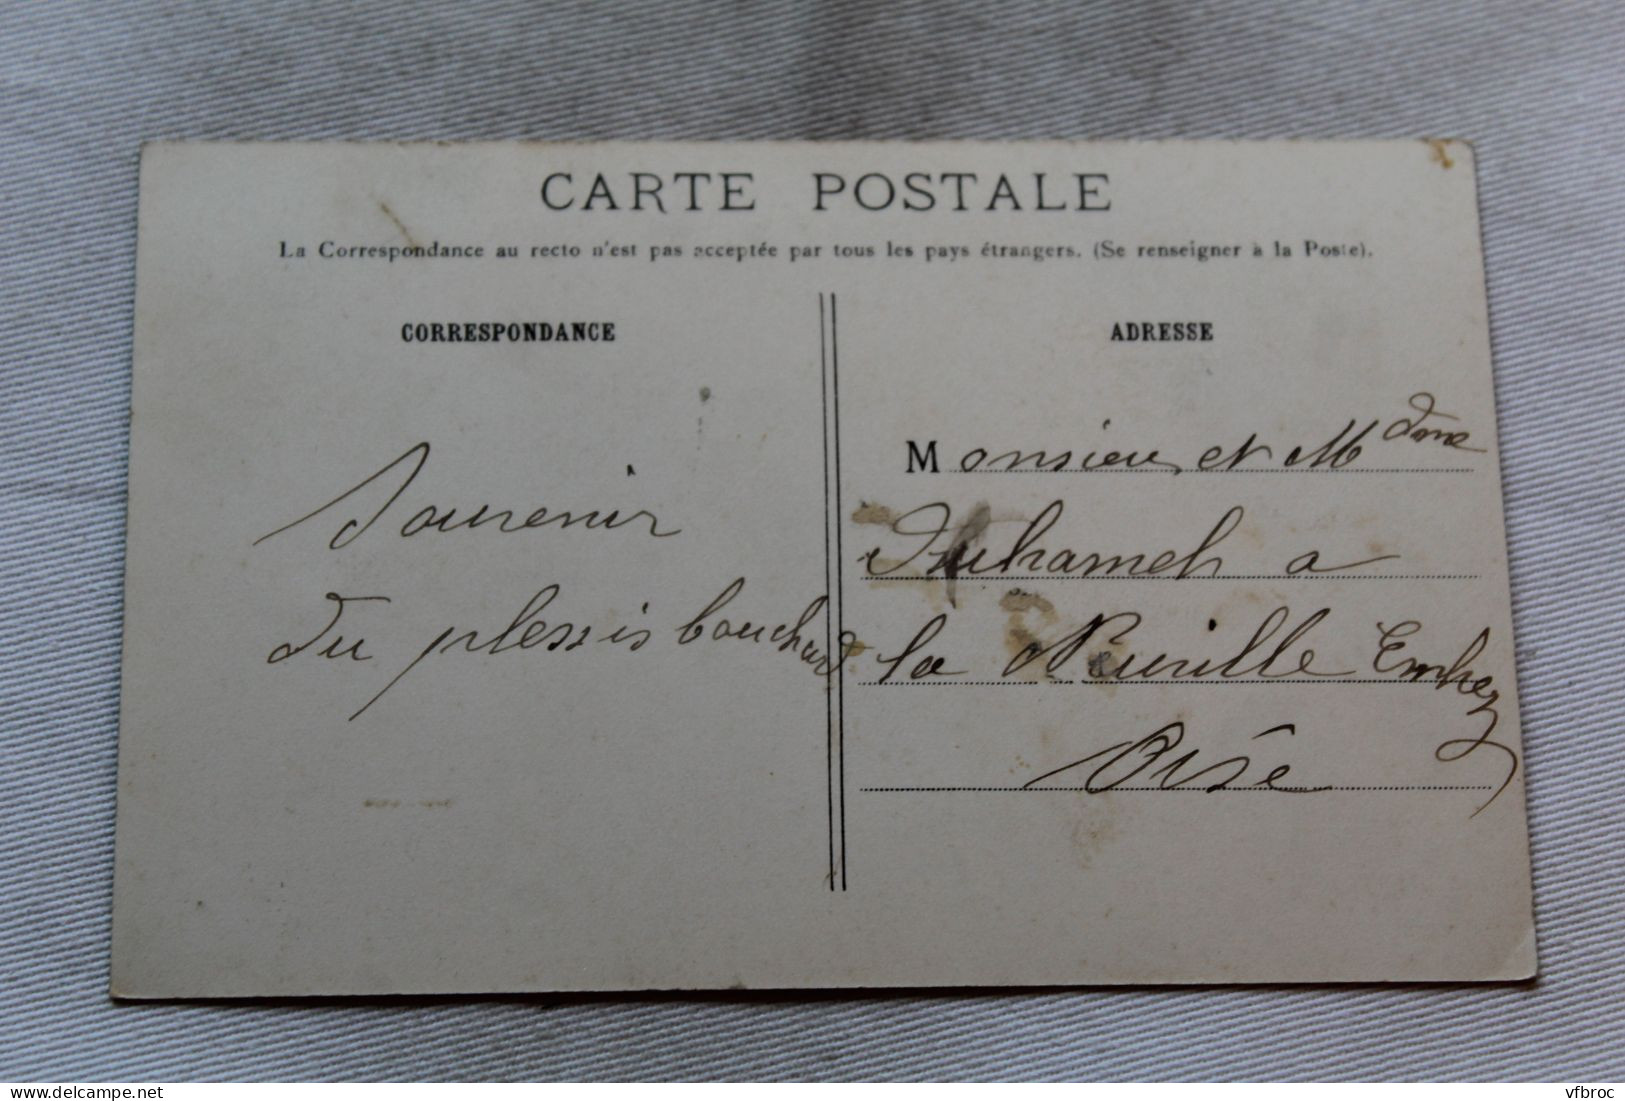 CARTE POSTALE
La Correspondance au recto n'est pas acceptée par tous les pays étrangers. (Se renseigner à la Poste).
CORRESPONDANCE
Souvenir
du plessis bouchard
ADRESSE
Monsieur et Mdme
Duhamel a
la Neuville
Oise
© www.delcampe.net
vfbroc